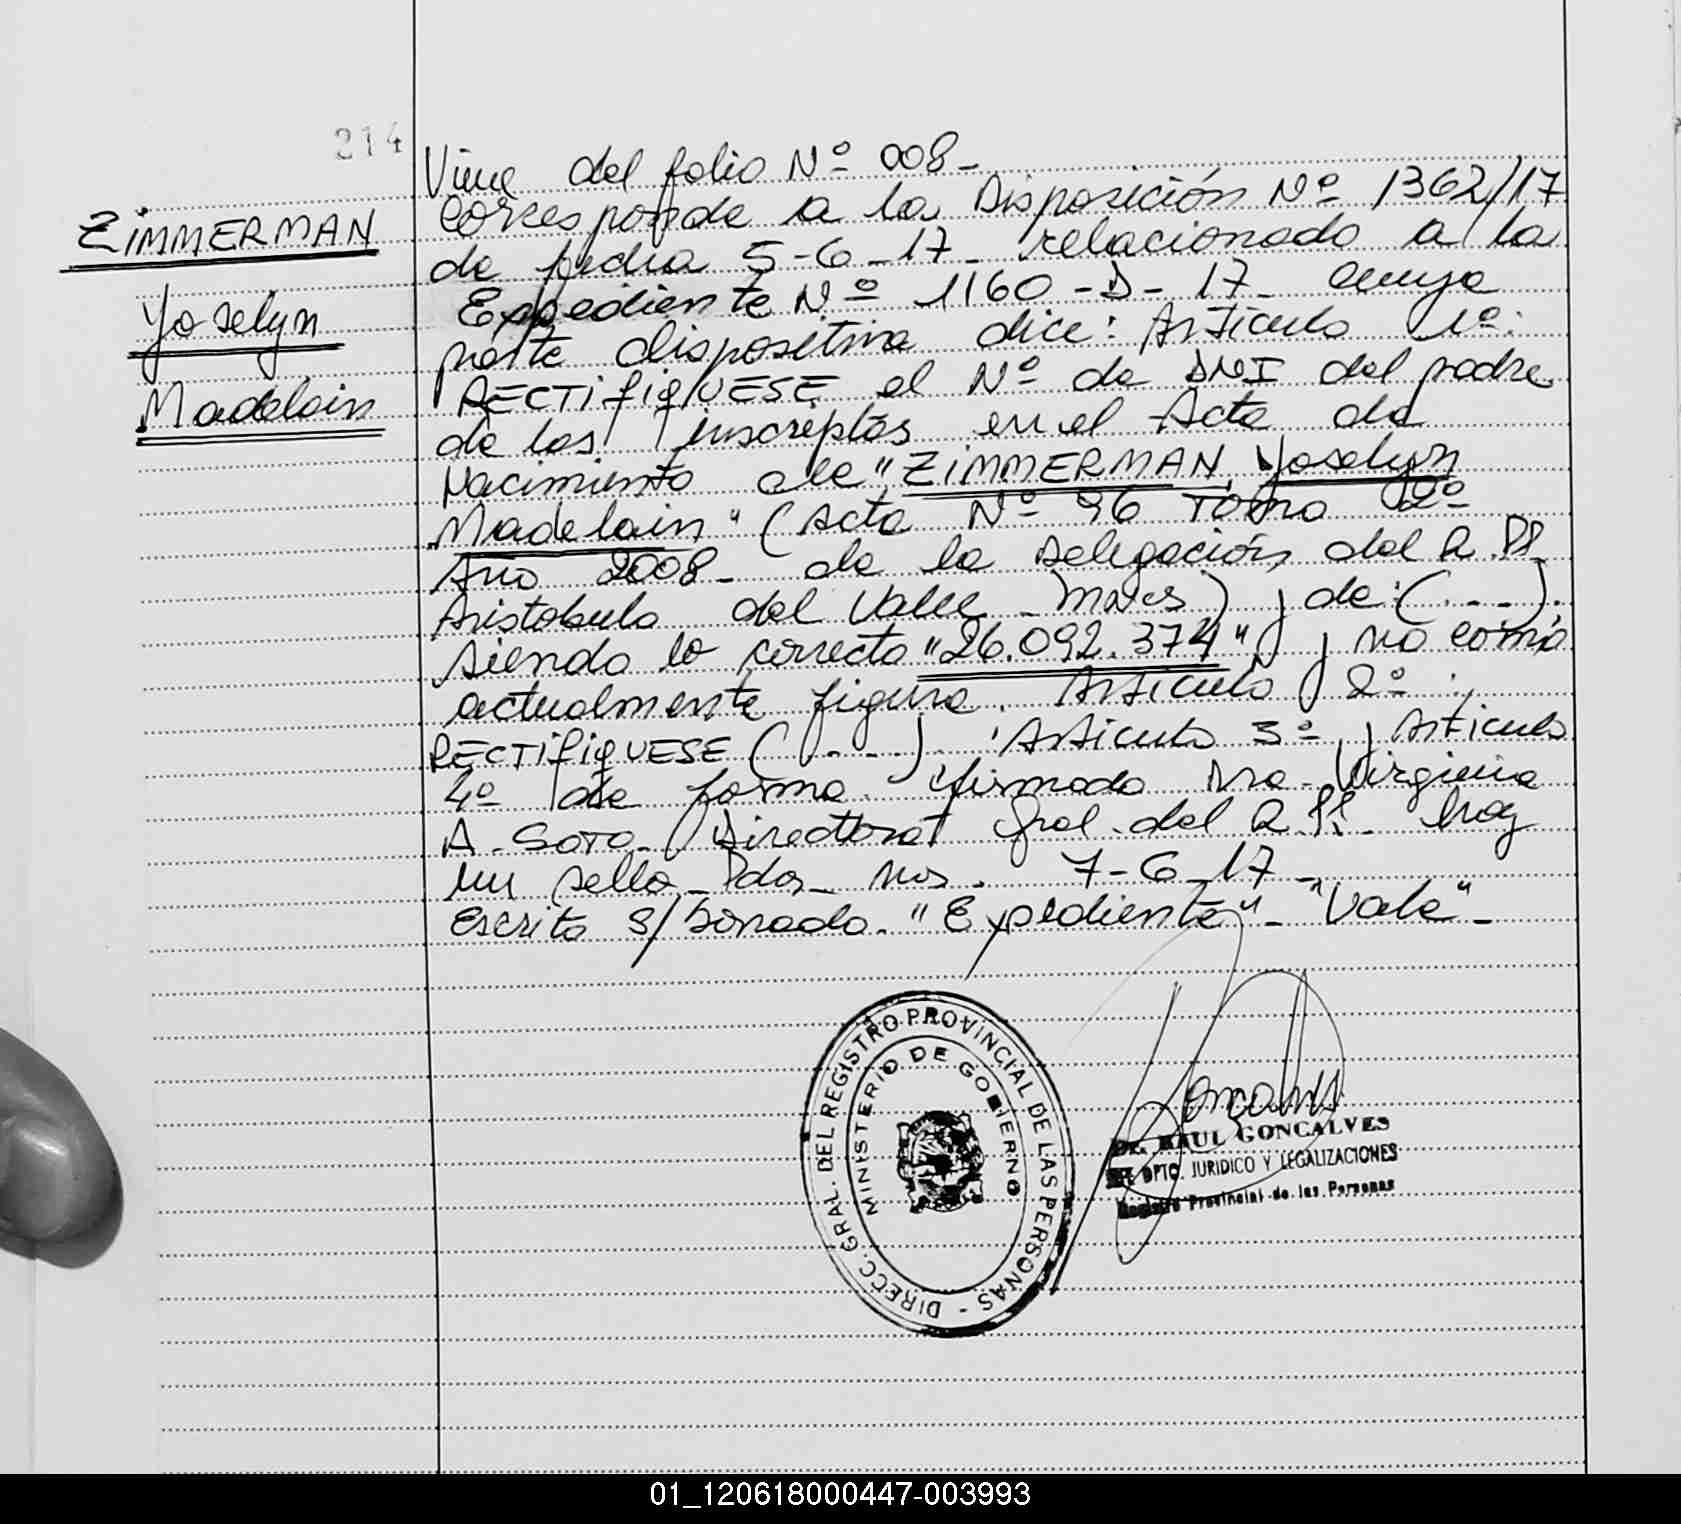 214
ZIMMERMAN
Yoselyn
Madelain
Viene del folio Nº 008-
Corresponde a la Disposición Nº 1362/17
de fecha 5-6-17- relacionado a la
Expediente Nº 1160-D-17- cuya
parte dispositiva dice: Artículo 1º:
RECTIFIQUESE el Nº de DNI del padre
de los inscriptos en el Acta de
Nacimiento de "ZIMMERMAN Yoselyn
Madelain" (Acta Nº 96 Tomo 2º
Año 2008- de la Delegación del R.P.P.
Aristobulo del Valle - Mnes) , de: (...).
siendo lo correcto "26.092.374" , no como
actualmente figura. Artículo 2º :
RECTIFIQUESE (....). Artículo 3º , Artículo
4º de forma. Firmado Dra. Virginia
A. Soto. Directora Gral. del R.P.P. hay
un sello - Pdas - Mns. 7-6-17-
Escrito s/borrado. "Expediente" - "Vale"-
DIRECC. GRAL. DEL REGISTRO PROVINCIAL DE LAS PERSONAS -
MINISTERIO DE GOBIERNO
Dr. RAUL GONCALVES
DPTO. JURIDICO Y LEGALIZACIONES
Registro Provincial de las Personas
01_120618000447-003993